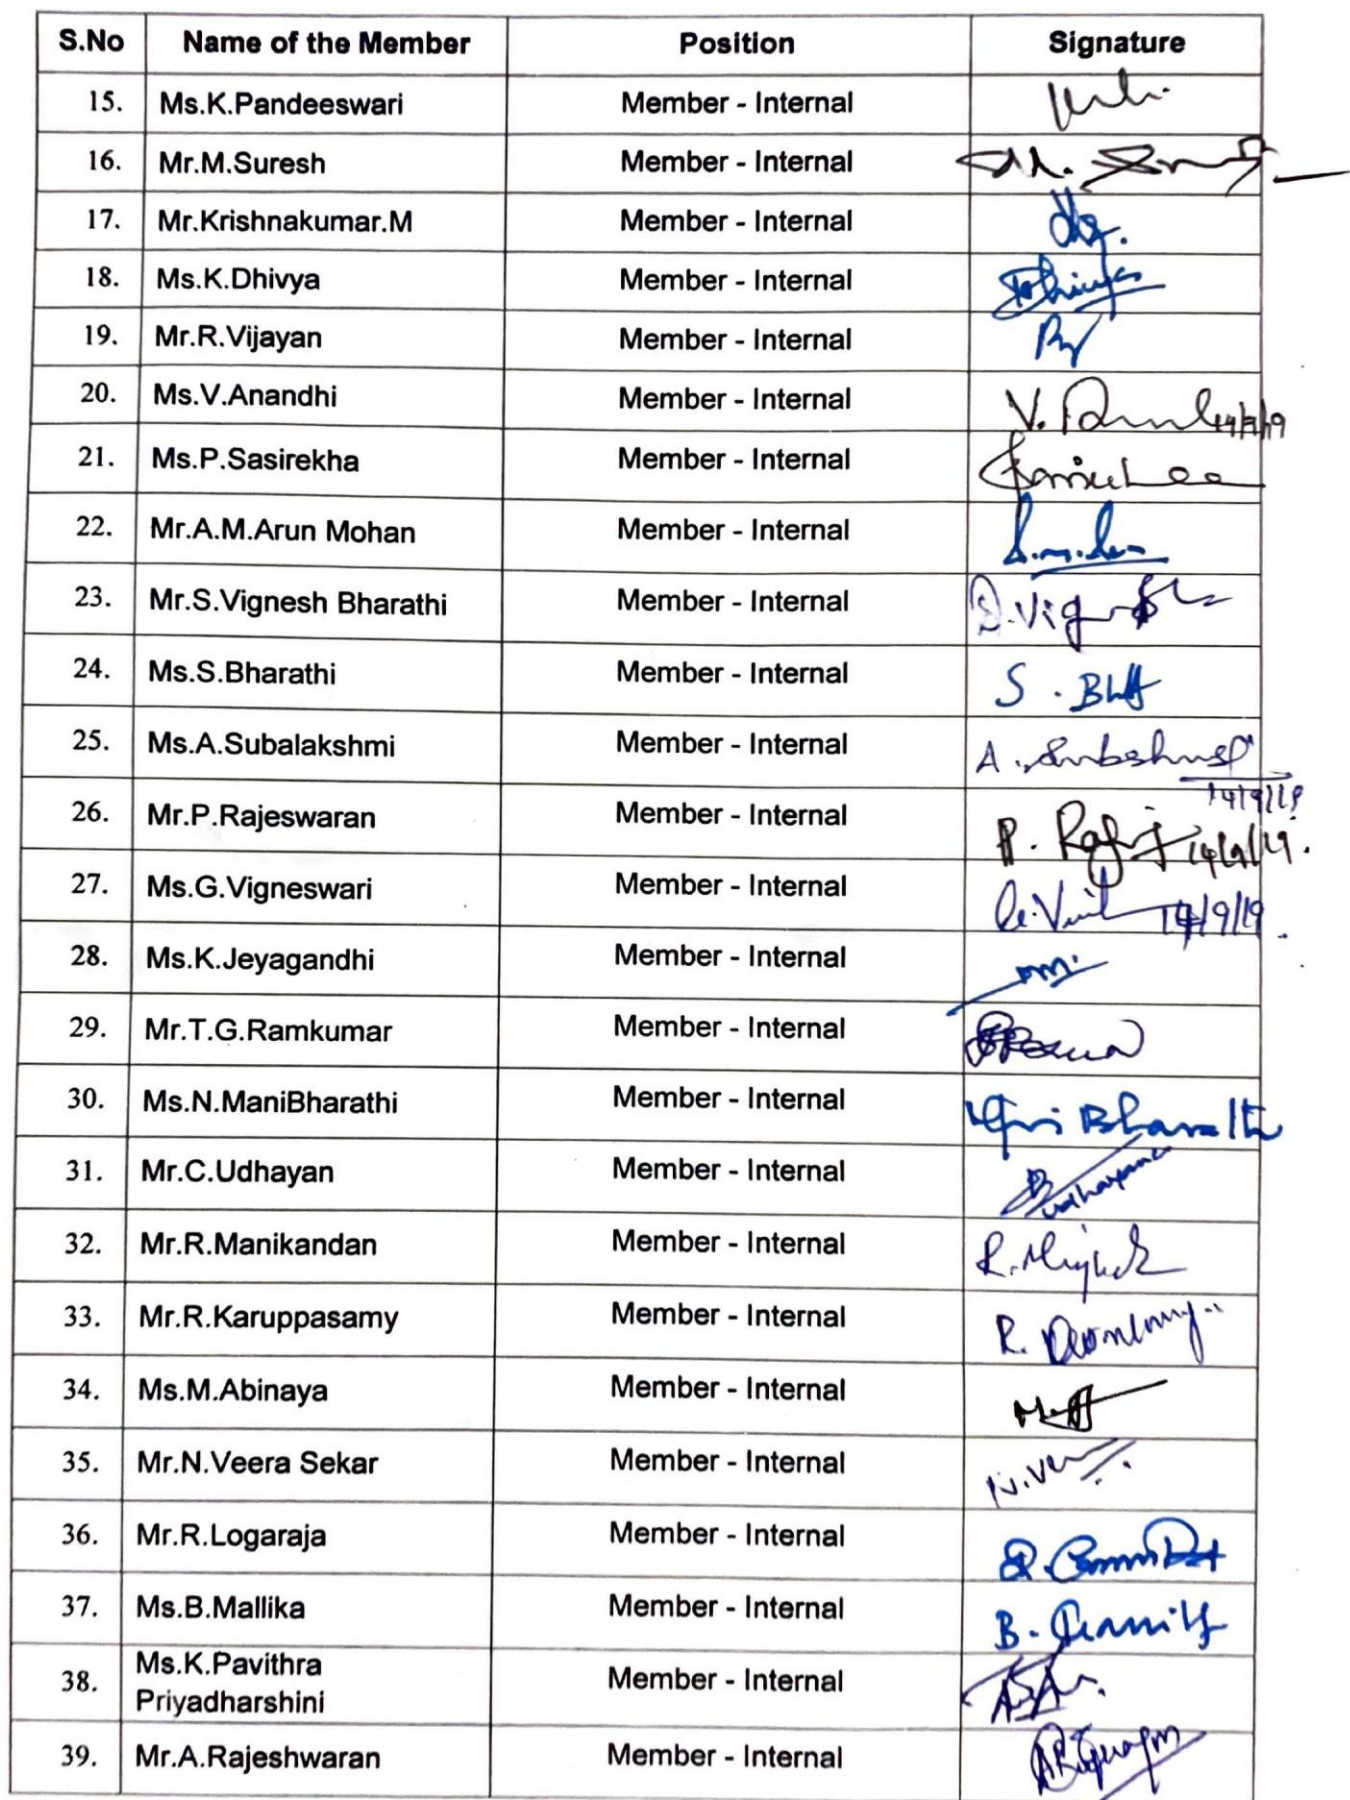 S.No Name of the Member Position Signature
15. Ms.K.Pandeeswari Member - Internal
16. Mr.M.Suresh Member - Internal
17. Mr.Krishnakumar.M Member - Internal
18. Ms.K.Dhivya Member - Internal
19. Mr.R.Vijayan Member - Internal
20. Ms.V.Anandhi Member - Internal V.
21. Ms.P.Sasirekha Member - Internal
22. Mr.A.M.Arun Mohan Member - Internal
23. Mr.S.Vignesh Bharathi Member - Internal
24. Ms.S.Bharathi Member - Internal S.
25. Ms.A.Subalakshmi Member - Internal A.
14/9/19
26. Mr.P.Rajeswaran Member - Internal P. 14/9/19.
27. Ms.G.Vigneswari Member - Internal 14/9/19.
28. Ms.K.Jeyagandhi Member - Internal
29. Mr.T.G.Ramkumar Member - Internal
30. Ms.N.ManiBharathi Member - Internal Bharathi
31. Mr.C.Udhayan Member - Internal
32. Mr.R.Manikandan Member - Internal R.
33. Mr.R.Karuppasamy Member - Internal R.
34. Ms.M.Abinaya Member - Internal
35. Mr.N.Veera Sekar Member - Internal
36. Mr.R.Logaraja Member - Internal
37. Ms.B.Mallika Member - Internal B.
38. Ms.K.Pavithra Member - Internal
Priyadharshini
39. Mr.A.Rajeshwaran Member - Internal